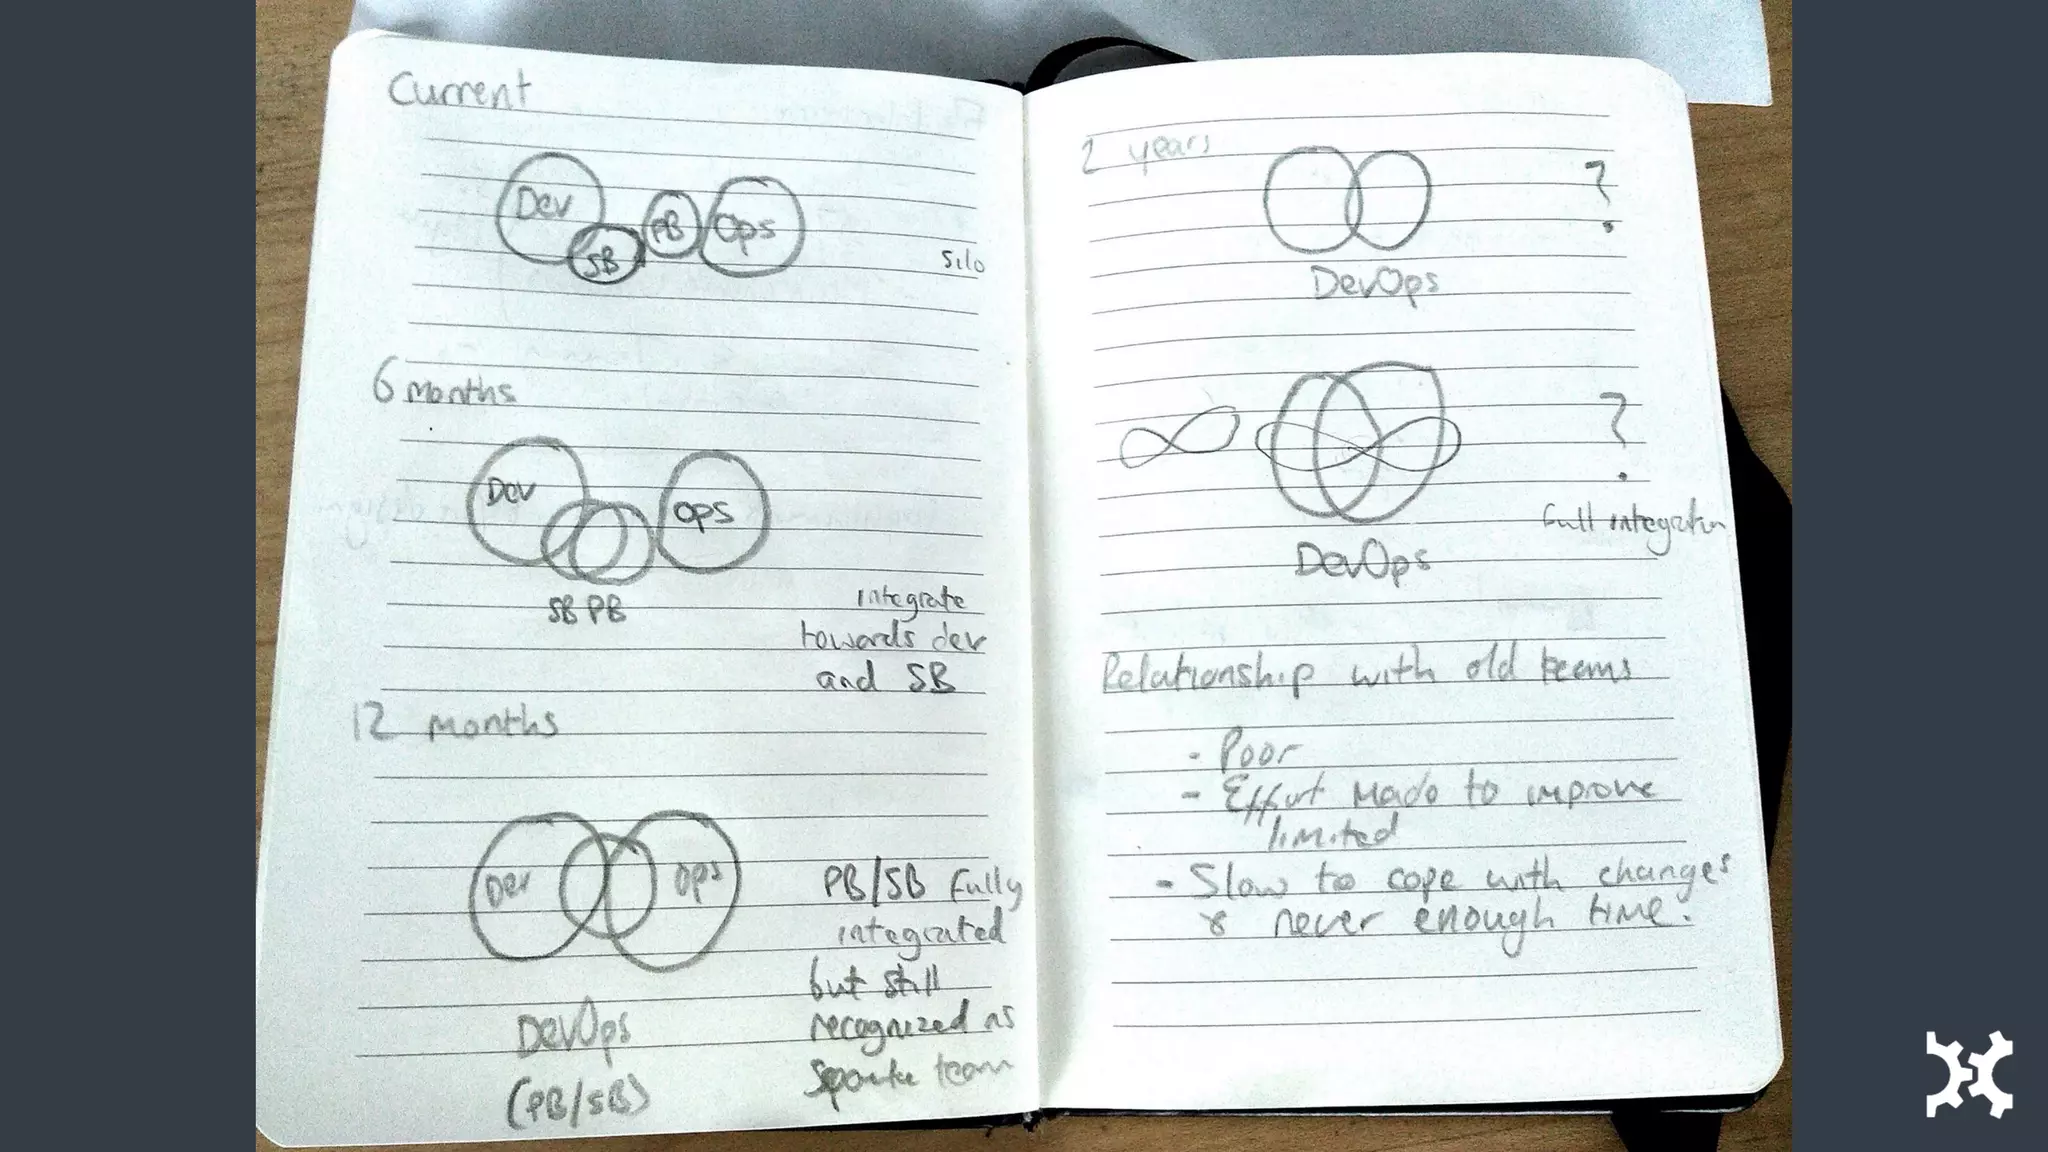 Current
Dev
SB
PB
Ops
Silo
6 months
Dev
Ops
SB PB
integrate
towards dev
and SB
12 months
Dev
Ops
PB/SB Fully
integrated
but still
recognized as
team
DevOps
(PB/SB)
2 years
?
DevOps
?
Full integration
DevOps
Relationship with old teams
- Poor
- Effort made to improve
limited
- Slow to cope with changes
& never enough time.